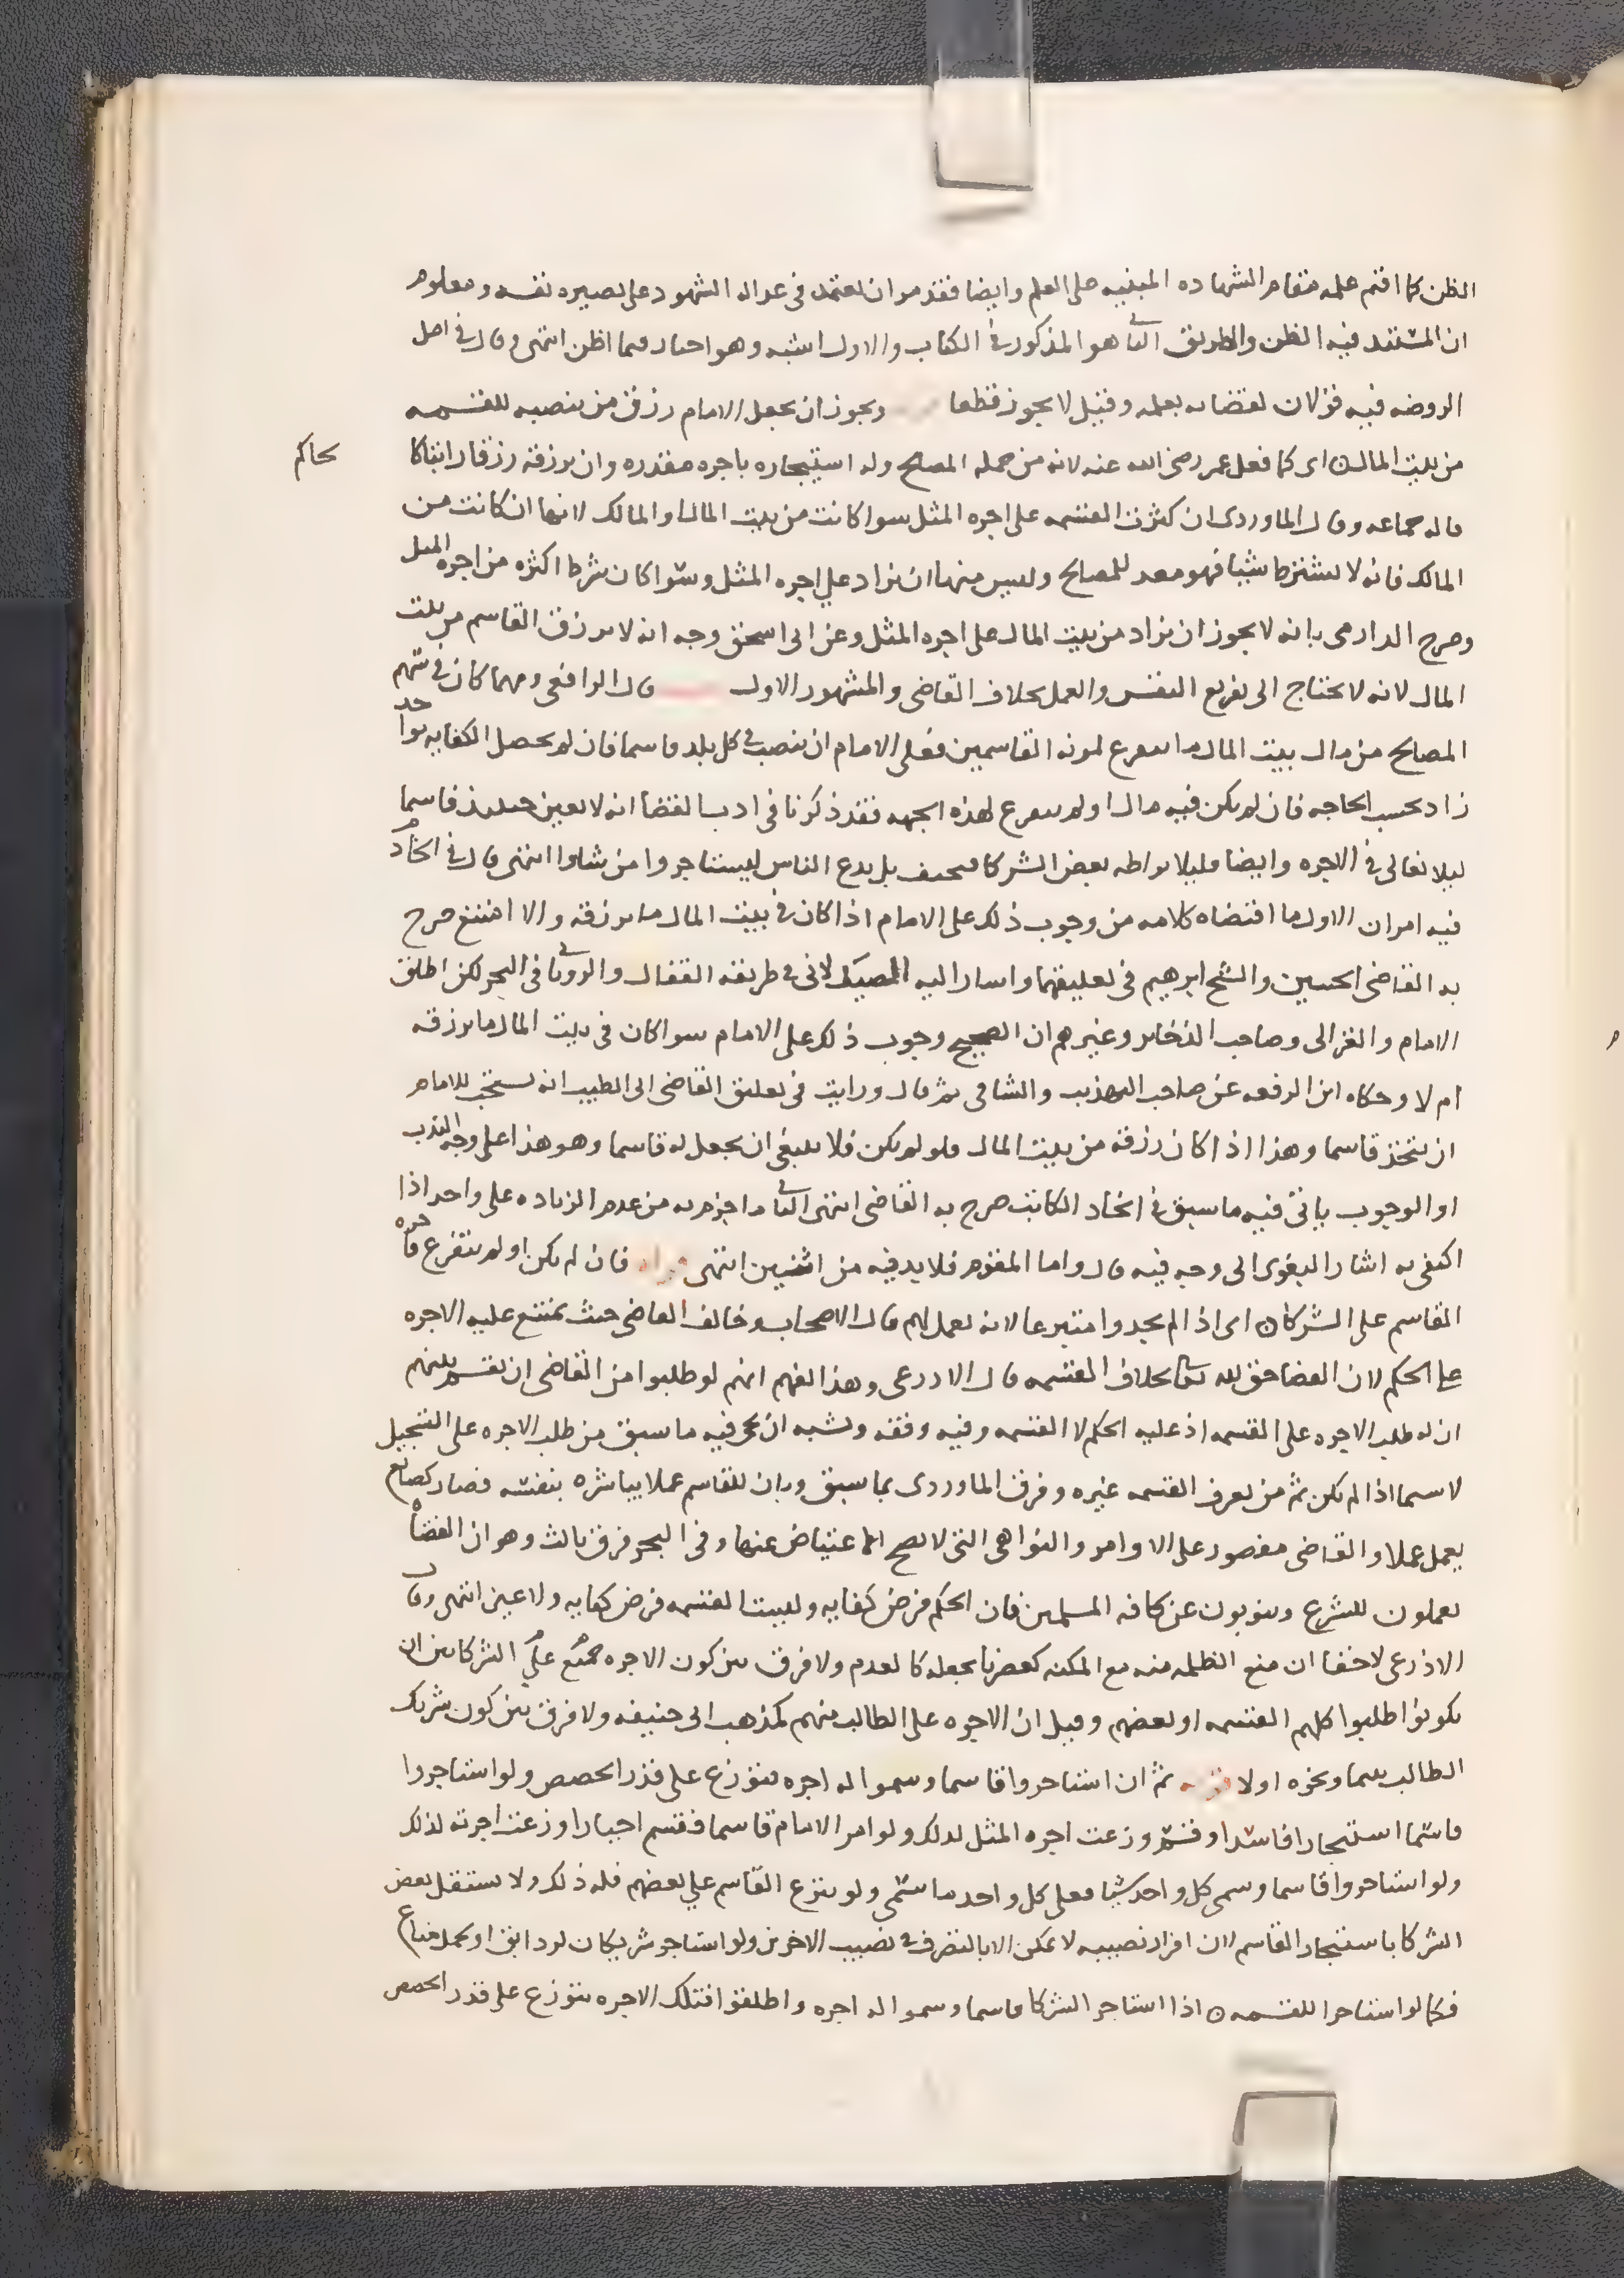 الظن كما اقيم علمه مقام الشهاده المبنيه على العلم وايضا فقد مر ان يعتمد في عداله الشهود على بصيره نفسه ومعلوم
ان المستند فيه الظن والطريق الثاني هو المذكور في الكتاب والاول اشبه وهو احتار فيما اظن انتهى وقال في اصل
الروضه فيه قولان لقضائه بعلمه وقيل لا يجوز قطعا ويجوز ان يجعل الامام رزق من ينصبه للقسمه
من بيت المال اى كما فعل عمر رضى الله عنه لانه من جمله المصالح وله استيجاره باجره مقدره وان يرزقه رزقا راتبا كا
لحاكم
قاله جماعه وقال الماوردى ان كثرت القسمه على اجره المثل سوا كانت من بيت المال او المالك لانها ان كانت من
المالك فانه لا يشترط شيا فهو معد للمصالح وليس منها ان يزاد على اجره المثل وسوا كان شرط اكثره من اجره المثل
وصرح الدارمى بانه لا يجوز ان يزاد من بيت المال على اجره المثل وعن ابى اسحق وجه انه لا يرزق القاسم من بيت
المال لانه لا يحتاج الى تفريع النفس والعمل بخلاف القاضى والمشهور الاول قال الرافعى ومهما كان في سهم
المصالح من مال بيت المال ما يتفرع لمونه القاسمين فعلى الامام ان ينصب في كل بلد قاسما فان لم يحصل الكفايه بواحد
زاد بحسب الحاجه فان لم يكن فيه مال او لم يتفرع لهذه الجهه فقد ذكرنا في ادب القضا انه لا يعين حينئذ قاسما
ليلا يغالى في الاجره وايضا فليلا يواطه بعض الشركا فيحيف بل يدع الناس ليستاجروا من شاوا انتهى قال في الخادم
فيه امران الاول ما اقتضاه كلامه من وجوب ذلك على الامام اذا كان في بيت المال ما يرزقه والا امتنع صرح
به القاضى الحسين والشيخ ابرهيم في تعليقهما واشار اليه المصيدلانى في طريقه القفال والرويانى في البحر لكن اطلق
الامام والغزالى وصاحب الذخاير وغيرهم ان الصحيح وجوب ذلك على الامام سوا كان في بيت المال ما يرزقه
ام لا وحكاه ابن الرفعه عن صاحب التهذيب والشافى ثم قال ورايت في تعليق القاضى ابى الطيب انه يستحب للامام
ان يتخذ قاسما وهذا اذا كان رزقه من بيت المال فلو لم يكن فلا ينبغى ان يجعل له قاسما وهو هذا على وجه الندب
او الوجوب ياتى فيه ما سبق في اتخاد الكاتب صرح به القاضى انتهى الثانى ما اجزم به من عدم الزياده على واحد اذا
اكتفى به اشار البغوى الى وجه فيه قال واما المقوم فلابد فيه من اثنين انتهى فان لم يكن او لم يتفرع فاجره
القاسم على الشركان اى اذا لم يجدوا متبرعا لانه يعمل لهم قال الاصحاب وخالف القاضى حيث تمتنع عليه الاجره
على الحكم لان القضا حق لله تعالى بخلاف القسمه قال الاذرعى وهذا يفهم انهم لو طلبوا من القاضى ان يقسم بينهم
ان له طلب الاجره على القسمه اذ عليه الحكم لا القسمه وفيه وقفه ويشبه ان يجى فيه ما سبق من طلب الاجره على التسجيل
لا سيما اذا لم يكن ثم من يعرف القسمه غيره وفرق الماوردى بما سبق وبان للقاسم عملا يباشره بنفسه فصار كصانع
يعمل عملا والقاضى مقصور على الاوامر والنواهى التى لا يصح الاعتياض عنها وفى البحر فرق ثالث وهو ان القضاه
يعملون للشرع وينوبون عن كافه المسلمين فان الحكم فرض كفايه وليست القسمه فرض كفايه ولا عين انتهى وقال
الاذرعى لا خفا ان منع الظلمه منه مع المكنه كعضريا يجعله كالعدم ولا فرق بين كون الاجره جميع على الشركا بين ان
يكونوا طلبوا كلهم القسمه او بعضهم وقيل ان الاجره على الطالب منهم كمذهب ابى حنيفه ولا فرق بين كون شريك
الطالب يتيما ونحوه اولا ثم ان استاجروا قاسما وسموا له اجره تتوزع على قدر الحصص ولو استاجروا
قاسما استيجارا فاسدا وقسم وزعت اجره المثل لذلك ولو امر الامام قاسما فقسم اجبارا وزعت اجرته لذلك
ولو استاجروا قاسما وسمى كل واحد شيا فعلى كل واحد ما سمى ولو تبرع القاسم على بعضهم فله ذلك ولا يستقل بعض
الشركا باستيجار القاسم لان افراز نصيبه لا يمكن الا بالتصرف في نصيب الاخرين ولو استاجر شريكان لرد ابق او يحمل متاع
فكما لو استاجرا للقسمه اذا استاجر الشركا قاسما وسموا له اجره واطلقوا فتلك الاجره تتوزع على قدر الحصص